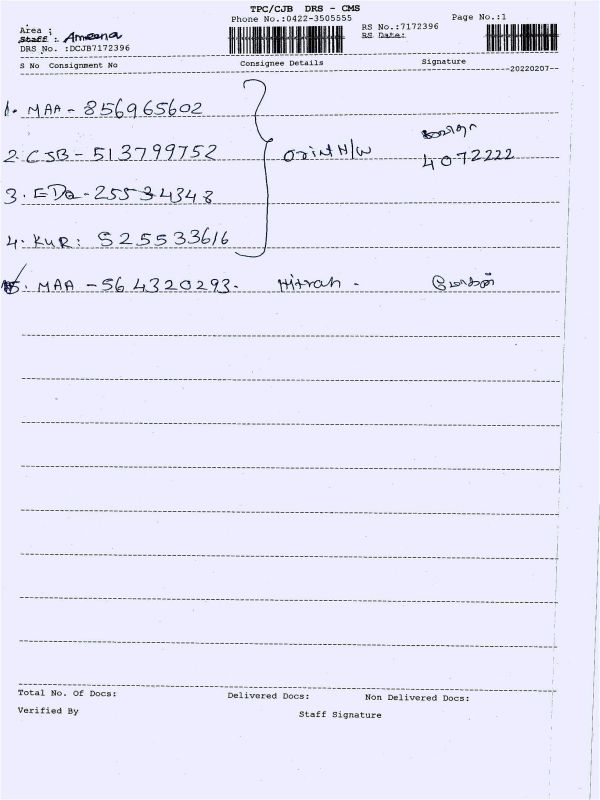 TPC/CJB DRS - CMS
Phone No.:0422-3505555
Page No.:1
Area :
Staff : Ameena
DRS No. :DCJB7172396
RS No.:7172396
RS Date:
S No Consignment No Consignee Details Signature
--20220207--
1. MAA - 856965602
2. CJB - 513799752 4072222
3. EDQ - 25534348
4. KUR : S25533616
5. MAA - 564320293. Mitrah - மோகன்
Total No. Of Docs: Delivered Docs: Non Delivered Docs:
Verified By Staff Signature